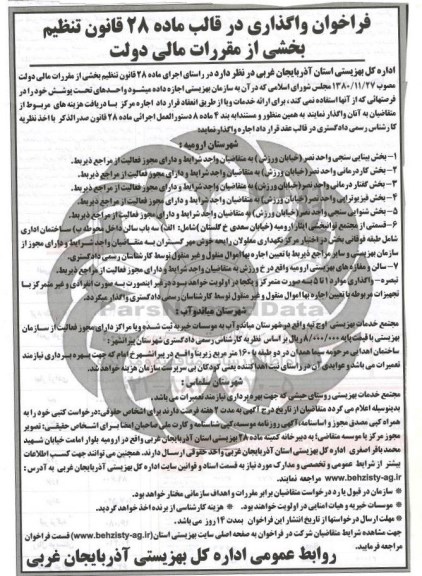 فراخوان واگذاری در قالب ماده ۲۸ قانون تنظیم
بخشی از مقررات مالی دولت
اداره کل بهزیستی استان آذربایجان غربی در نظر دارد در راستای اجرای ماده ۲۸ قانون تنظیم بخشی از مقررات مالی دولت
مصوب ۱۳۸۰/۱۱/۲۷ مجلس شورای اسلامی که در آن به سازمان بهزیستی اجازه داده میشود واحدهای تحت پوشش خود را در
فرصتهائی که از آنها استفاده نمی کند، برای ارائه خدمات ویا از طریق انعقاد قرارداد اجاره مرکز با دریافت هزینه های مربوط از
متقاضیان به آنان واگذار نمایند به همین منظور و مستندا به بند ۴ ماده ۸ دستورالعمل اجرائی ماده ۲۸ قانون صدرالذکر با اخذ نظریه
کارشناس رسمی دادگستری در قالب عقد قرارداد اجاره واگذار نماید:
شهرستان ارومیه:
۱- بخش بینایی سنجی واحد نصر (خیابان ورزش) به متقاضیان واجد شرایط و دارای مجوز فعالیت از مراجع ذیربط.
۲- بخش کاردرمانی واحد نصر (خیابان ورزش) به متقاضیان واجد شرایط و دارای مجوز فعالیت از مراجع ذیربط.
۳- بخش گفتار درمانی واحد نصر (خیابان ورزش) به متقاضیان واجد شرایط و دارای مجوز فعالیت از مراجع ذیربط.
۴- بخش فیزیوتراپی واحد نصر (خیابان ورزش) به متقاضیان واجد شرایط و دارای مجوز فعالیت از مراجع ذیربط.
۵- بخش شنوایی سنجی واحد نصر (خیابان ورزش) به متقاضیان واجد شرایط و دارای مجوز فعالیت از مراجع ذیربط.
۶- قسمتی از مجتمع توانبخشی ایثار ارومیه (خیابان سعدی خ گلستان) شامل: الف) سه باب سالن داخل محوطه ب) ساختمان اداری
شامل طبقه فوقانی بخش در اختیار مرکز نگهداری معلولان رایحه خوش مهرگران به متقاضیان واجد شرایط و دارای مجوز از
سازمان بهزیستی و سایر مراجع ذیربط با تعیین اجاره بها اموال منقول و غیر منقول توسط کارشناس رسمی دادگستری.
۷- سالن و مغازه های بهزیستی ارومیه واقع در خ ورزش به متقاضیان واجد شرایط و دارای مجوز فعالیت از مراجع ذیربط.
تبصره- واگذاری موارد ۱ تا ۵ بصورت متمرکز و یکجا در اولویت خواهد بود در غیر اینصورت به صورت انفرادی و غیر متمرکز با
تجهیزات مربوطه با تعیین اجاره بها اموال منقول و غیر منقول توسط کارشناس رسمی دادگستری واگذار میگردد.
شهرستان میاندوآب:
مجتمع خدمات بهزیستی اوج تپه واقع در شهرستان میاندوآب به موسسات خیریه ثبت شده ویا مراکز دارای مجوز فعالیت از سازمان
بهزیستی با قیمت پایه ۸/۰۰۰/۰۰۰ ریال بر اساس نظریه کارشناس رسمی دادگستری شهرستان پیرانشهر:
ساختمان اهدایی مرحومه سما همدان در دو طبقه با ۱۶۰ متر مربع زیربنا واقع در پیرانشهر خ امام که جهت بهره برداری نیازمند
تعمیرات می باشد و عوایدی آن در راستای نیت اهداکننده یعنی کودکان بی سرپرست سازمان هزینه خواهد شد.
شهرستان سلماس:
مجتمع خدمات بهزیستی روستای حبشی که جهت بهره برداری نیازمند تعمیرات می باشد.
بدینوسیله اعلام می گردد متقاضیان از تاریخ درج آگهی به مدت ۲ هفته فرصت دارند برای اشخاص حقوقی:درخواست کتبی خود را به
همراه کپی مصدق مجوز و اساسنامه، آگهی روزنامه موسسه، کپی شناسنامه و کارت ملی صاحبان امضا برای اشخاص حقیقی: تصویر
مجوز مرکز یا موسسه متقاضی؛ به دبیرخانه کمیته ماده ۲۸ بهزیستی استان آذربایجان غربی واقع در ارومیه بلوار امامت خیابان شهید
محمد باقر اصغری اداره کل بهزیستی استان آذربایجان غربی واحد حقوقی ارسال دارند. همچنین می توانند جهت کسب اطلاعات
بیشتر از شرایط عمومی و تخصصی و مدارک مورد نیاز به قسمت اسناد و قوانین سایت اداره کل بهزیستی آذربایجان غربی به آدرس:
www.behzisty-ag.ir مراجعه نمایند.
* سازمان در قبول یا رد درخواست متقاضیان برابر مقررات و اهداف سازمانی مختار خواهد بود.
* موسسات خیریه و هیات امنایی در اولویت خواهند بود. * هزینه کارشناسی از برنده اخذ خواهد گردید.
* مهلت ارسال درخواستها از تاریخ انتشار این فراخوان بمدت ۱۴ روز می باشد.
جهت مشاهده شرایط متقاضیان شرکت در فراخوان به صفحه اصلی سایت بهزیستی استان (www.behzisty-ag.ir) قسمت فراخوان
مراجعه فرمایید.
روابط عمومی اداره کل بهزیستی آذربایجان غربی